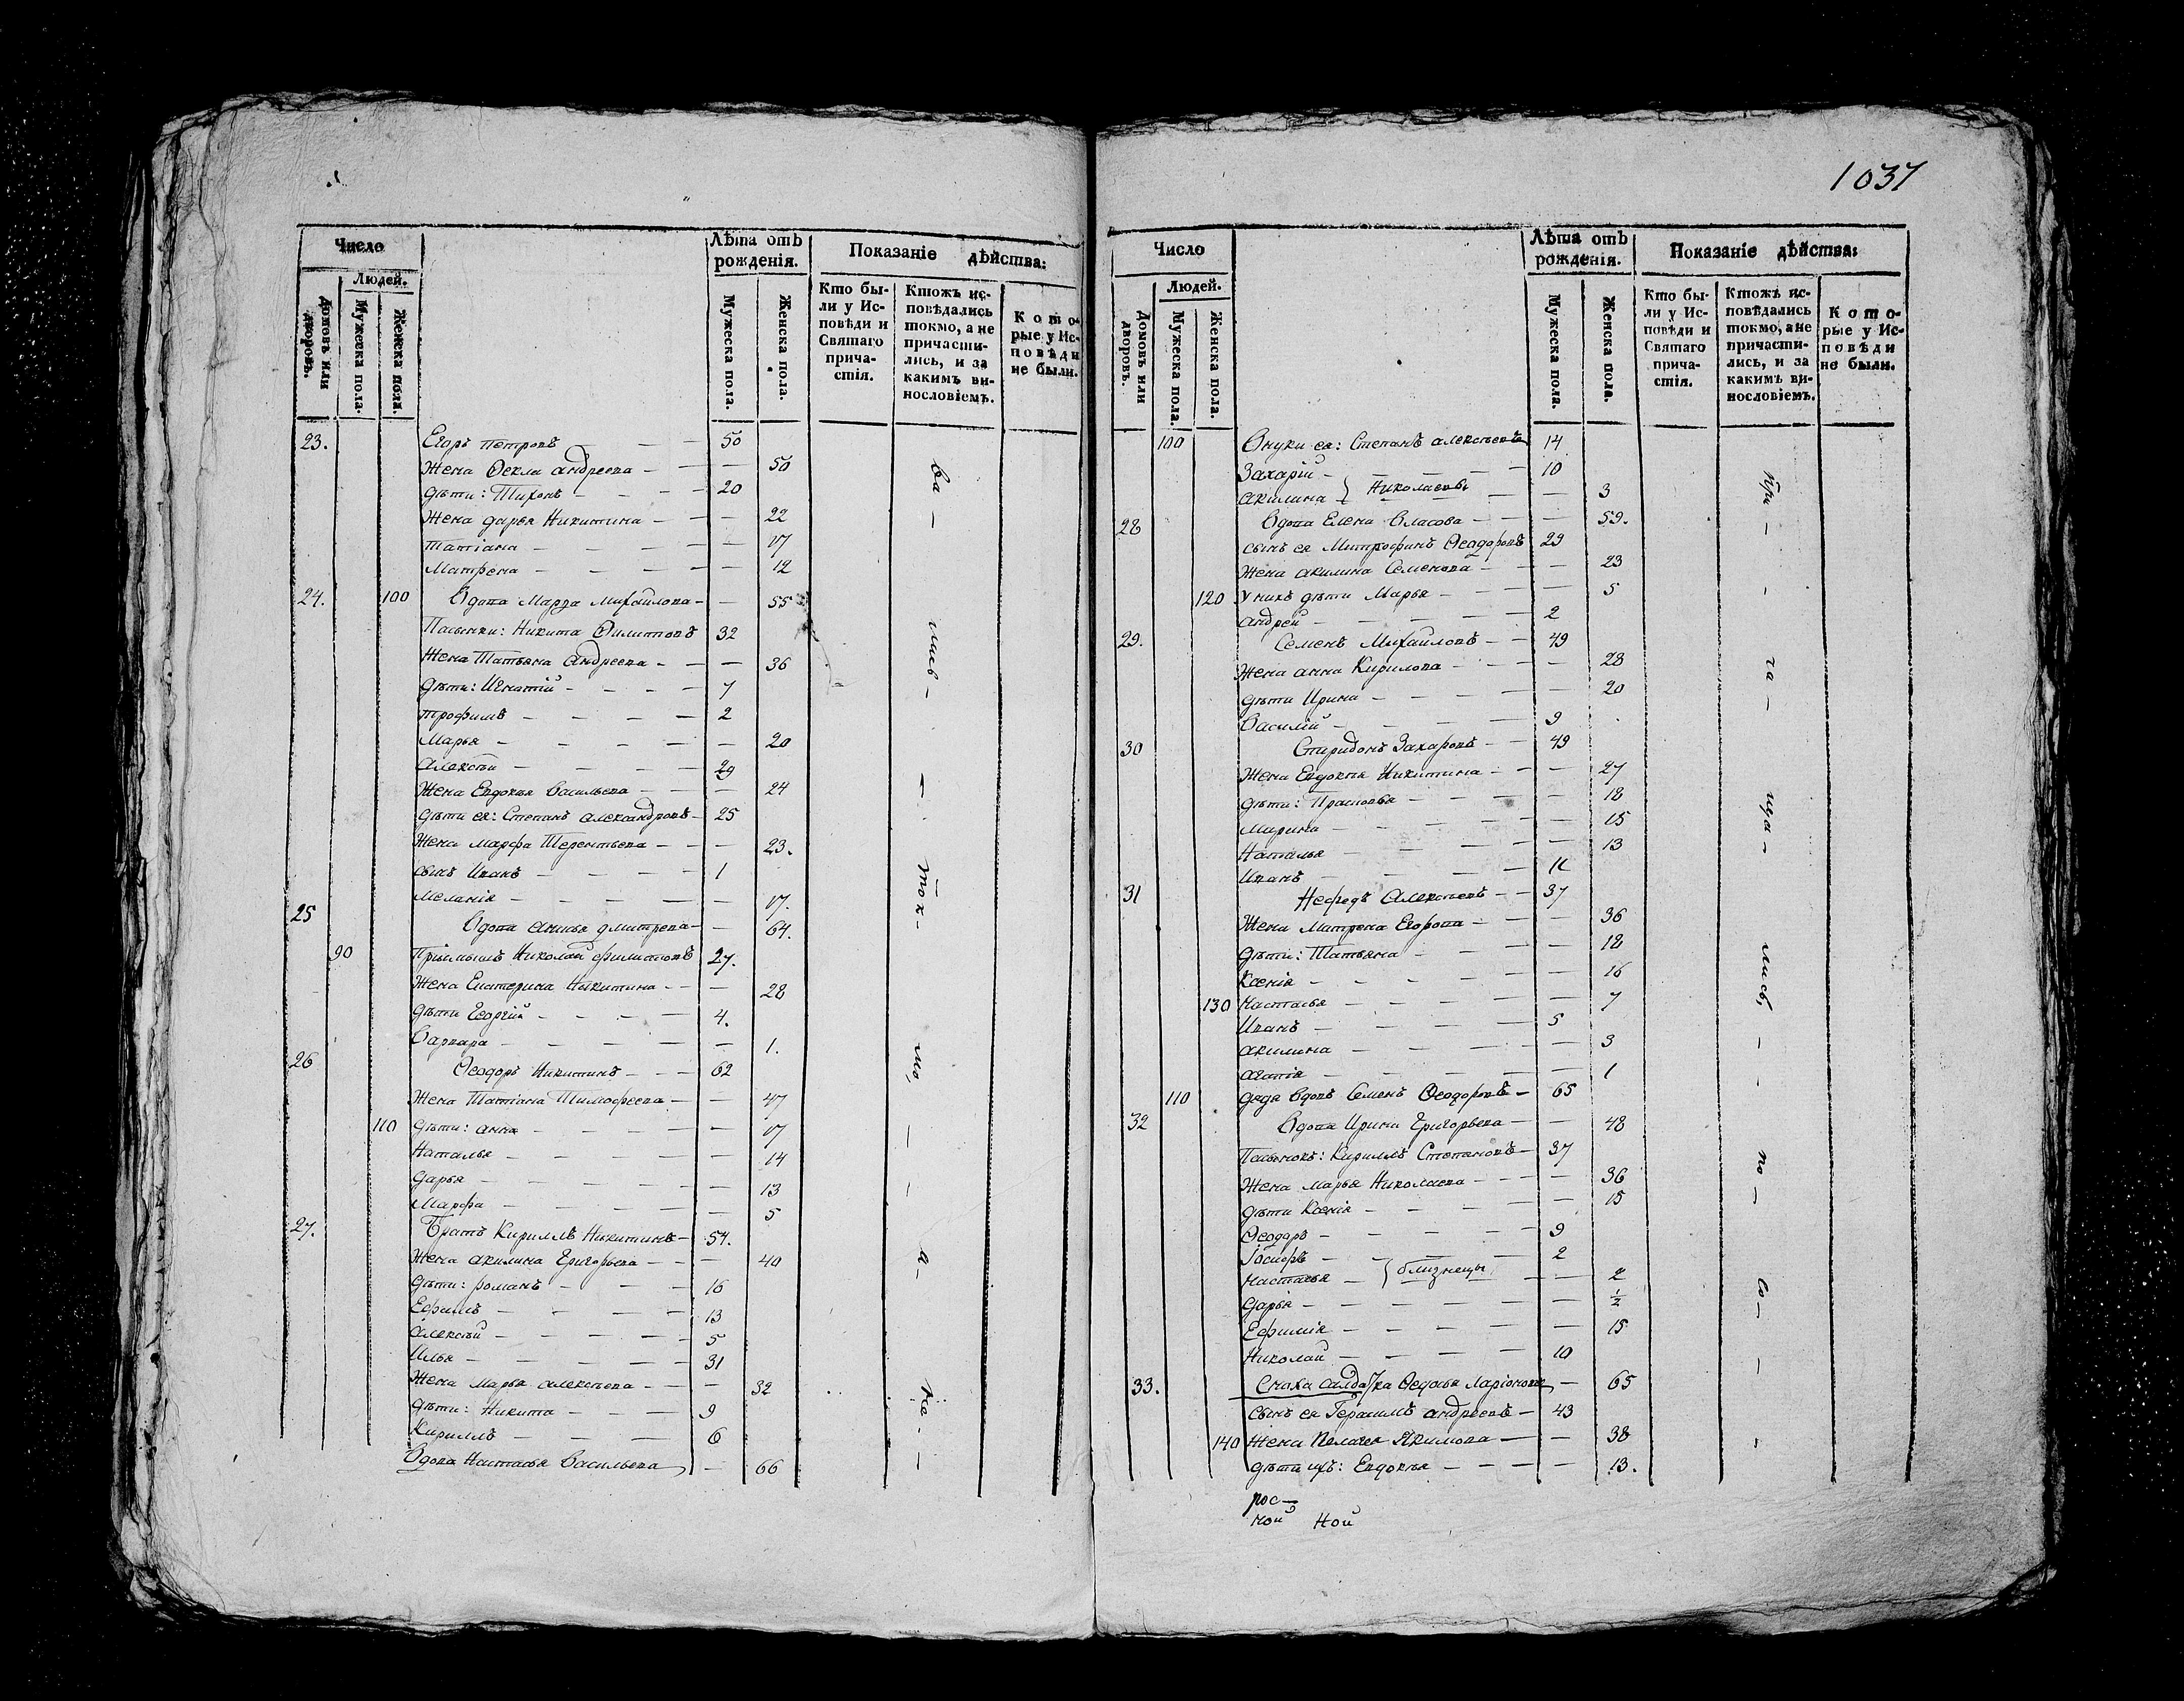 1037
Число
Людей.
Домовъ или дворовъ.
Мужеска пола.
Женска пола.
Лѣта отъ рожденія.
Мужеска пола.
Женска пола.
Показаніе дѣйства:
Кто были у Исповѣди и Святаго причастія.
Ктожъ исповѣдались токмо, а не причастились, и за какимъ винословіемъ.
Которые у Исповѣди не были.
23. Егоръ Петровъ — — 50
Жена Ѳекла Андреева — — — 50
дѣти: Тихонъ — — — 20
Жена дарья Никитина — — — 22
Татіана — — — — — 17
Матрена — — — — — 12
24. 100 Вдова Марѳа Михайлова — — 55
Пасынки: Никита Филиповъ 32
Жена Татьяна Андреева — — — 36
дѣти: Игнатій — — — — 7
Трофимъ — — — — 2
Марья — — — — — — 20
Алексѣй — — — — 29
Жена Евдокья Васильева — — — 24
дѣти ея: Степанъ Александровъ — 25
Жена Марфа Терентьева — — — 23.
сынъ Иванъ — — — — 1
Меланія — — — — — — 17.
25 Вдова Дмитрева — — 64.
90 Пріимышъ Николай Филиповъ 27.
Жена Екатерина Никитина — — — 28
дѣти Георгій — — — — 4.
Варвара — — — — — — 1.
26 Ѳеодоръ Никитинъ — — — 62
Жена Татіана Тимофеева — — 47
110 дѣти: Анна — — — — — 17
Наталья — — — — — 14
Дарья — — — — — — 13
Марфа — — — — — — 5
27. Братъ Кириллъ Никитинъ — 54.
Жена Акилина Григорьева — — — 40
дѣти: Романъ — — — 16
Ефимъ — — — — 13
Алексѣй — — — — — 5
Илья — — — — — — 31
Жена Марья Алексѣева — — — 32
дѣти: Никита — — — 9
Кириллъ — — — — 6
Вдова Настасья Васильева — 66
ва — лись — — ток — мо, — — а — не — —
Число
Людей.
Домовъ или дворовъ.
Мужеска пола.
Женска пола.
Лѣта отъ рожденія.
Мужеска пола.
Женска пола.
Показаніе дѣйства:
Кто были у Исповѣди и Святаго причастія.
Ктожъ исповѣдались токмо, а не причастились, и за какимъ винословіемъ.
Которые у Исповѣди не были.
100 Внуки ея: Степанъ Алексѣевъ 14
Захарій — — — — 10
Акилина } Николаевы — — 3
28 Вдова Елена Власова — — — 59.
сынъ ея Митрофанъ Ѳеодоровъ 29
Жена Акилина Семенова — — — 23
120 У нихъ дѣти Марья — — — — 5
Андрей — — — — — 2
29. Семенъ Михайловъ — — 49
Жена Анна Кирилова — — — — 28
дѣти Ирина — — — — — 20
Василій — — — — 9
30 Спиридонъ Захаровъ — — 49
Жена Евдокья Никитина — — — 27
дѣти: Прасковья — — — — 18
Марина — — — — — 15
Наталья — — — — — 13
Иванъ — — — — —
31 Нефедъ Алексѣевъ — — 37
Жена Матрена Егорова — — — 36
дѣти: Татьяна — — — — 18
Ксенія — — — — — — 16
130 Настасья — — — — — 7
Иванъ — — — — — 5
Акилина — — — — — 3
Агапія — — — — — 1
110 дядя вдовъ Семенъ Ѳеодоровъ — 65
32 Вдова Ирина Григорьева — — 48
Пасынокъ: Кириллъ Степановъ — 37
Жена Марья Николаева — — — — 36
дѣти Ксенія — — — — — 15
Ѳеодоръ — — — — — 9
Іосифъ — — — — 2
Настасья — } близнецы — — 2
Дарья — — — — — — ½
Ефимія — — — — — — 15
Николай — — — — 10
33. Сноха салдатка Ѳедосья Ларіонова — 65
сынъ ея Герасимъ Андреевъ — 43
140 Жена Пелагея Якимова — — 38
дѣти ихъ: Евдокья — — — — 13.
При — — ча — ща — лись, — — по — Ѳо — —
рос —
ной ной